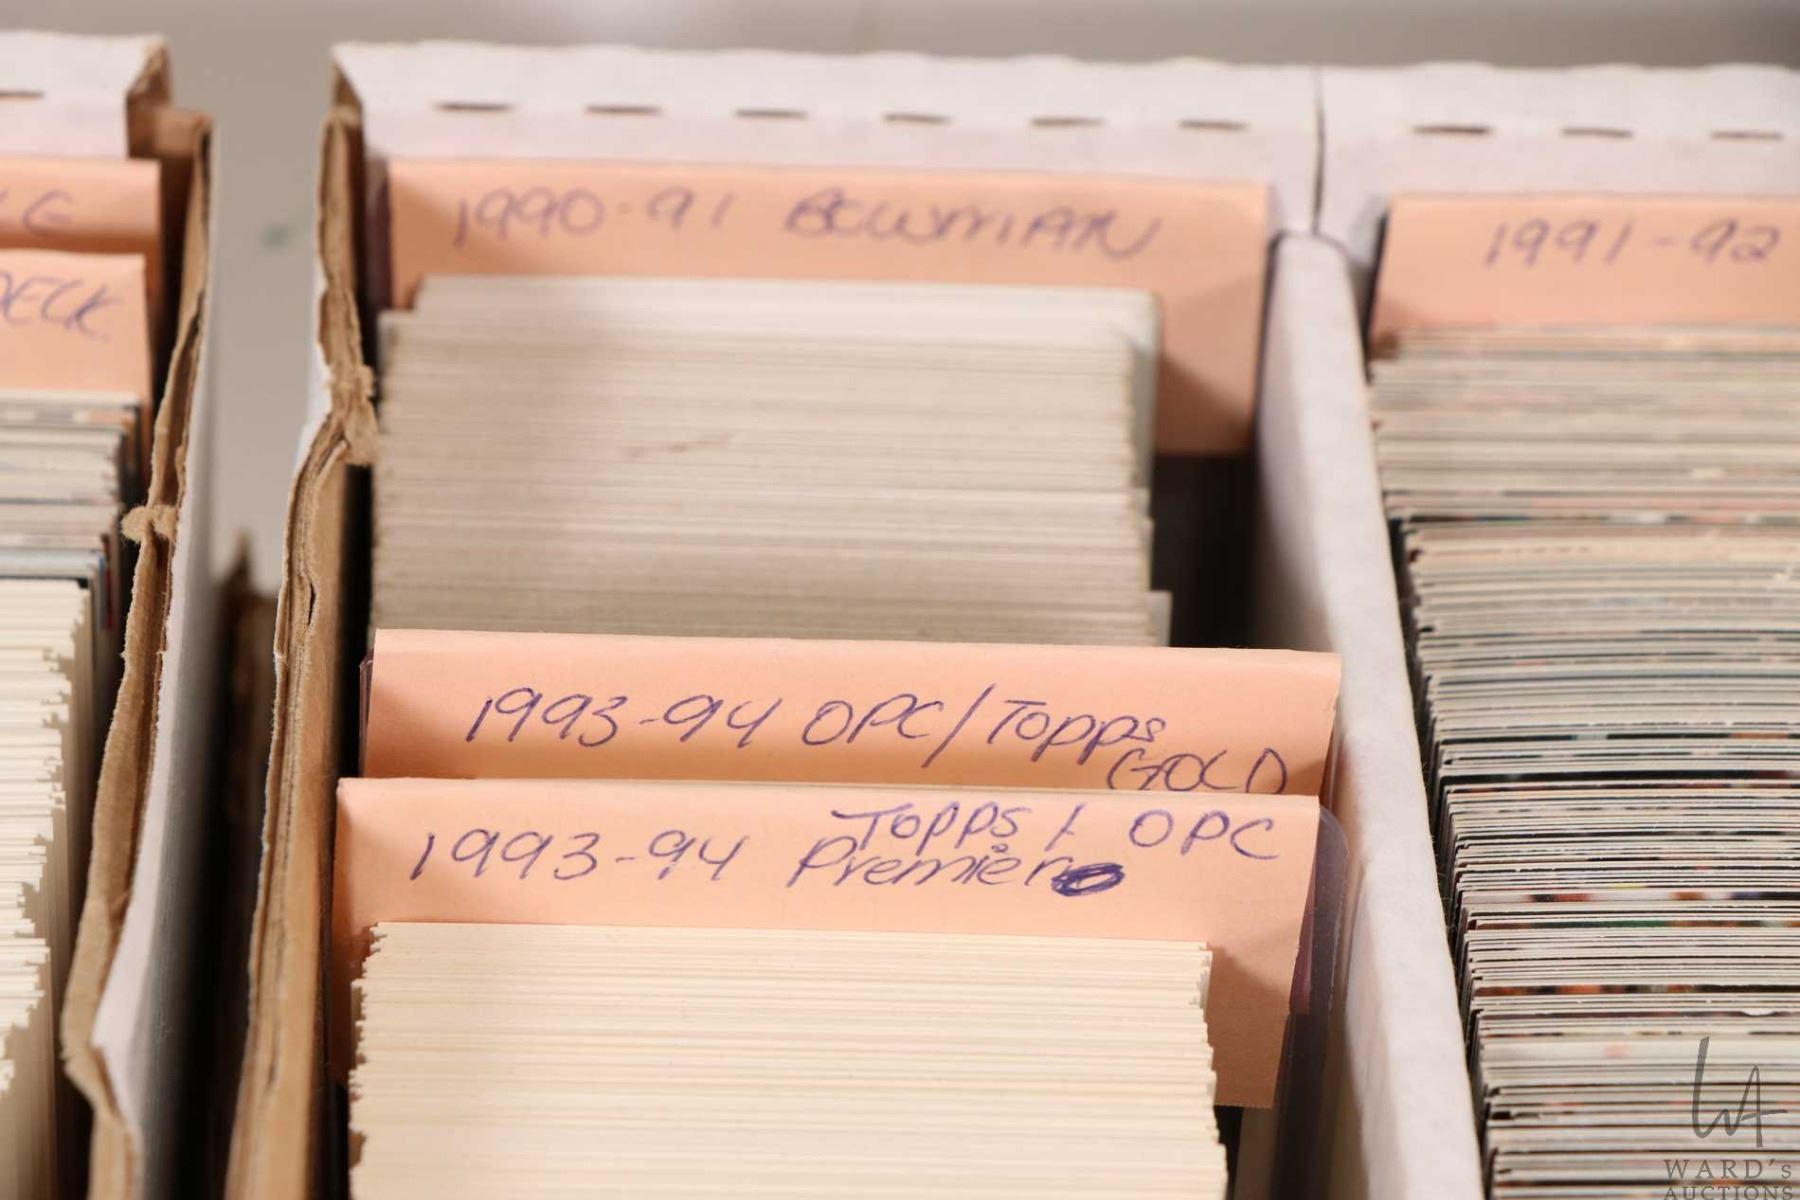 1990-91 BOWMAN
1991-92
DECK
1993-94 OPC/Topps
GOLD
Topps / OPC
1993-94 Premier
WA
WARD's
AUCTIONS